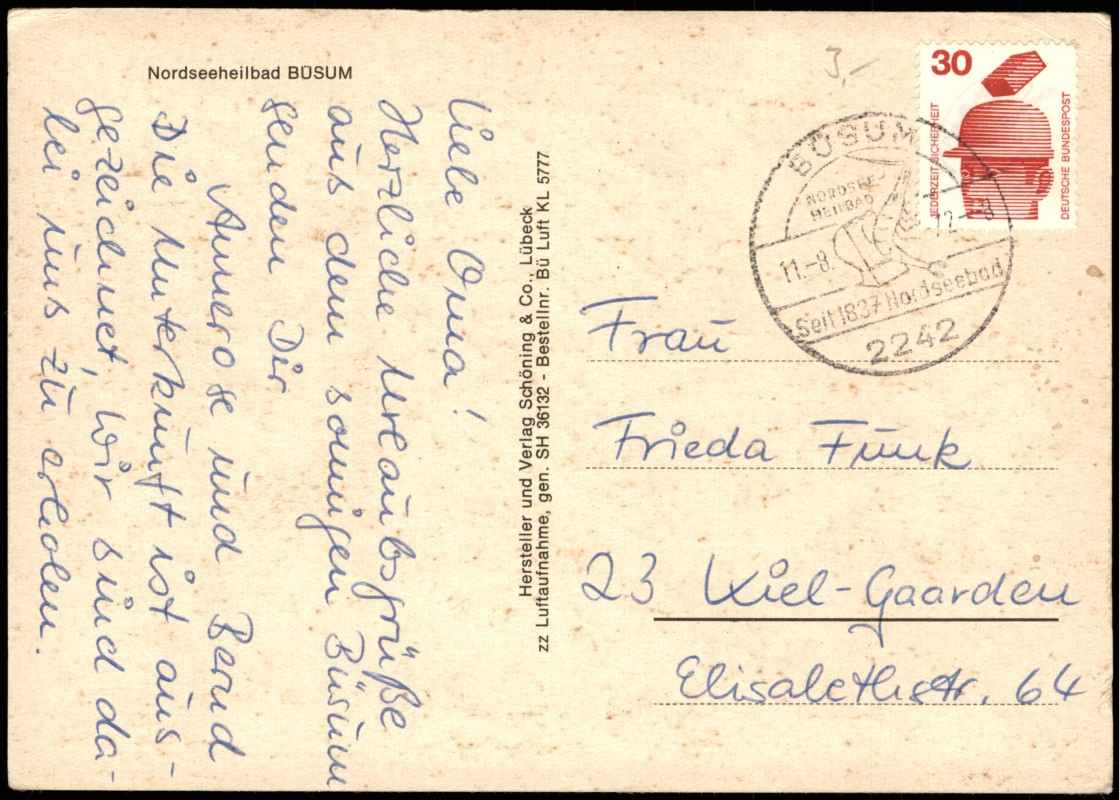 Nordseeheilbad BÜSUM
Liebe Oma!
Herzliche Urlaubsgrüße
aus dem sonnigen Büsum
senden Dir
Annerose und Bernd
Die Unterkunft ist aus-
gezeichnet, wir sind da-
bei uns zu erholen.
Hersteller und Verlag Schöning & Co., Lübeck
zz Luftaufnahme, gen. SH 36132 - Bestellnr. Bü Luft KL 5777
3,-
30
JEDERZEIT SICHERHEIT
DEUTSCHE BUNDESPOST
BÜSUM
NORDSEE-
HEILBAD
11.-8.
12-18
Seit 1837 Nordseebad
2242
Frau
Frieda Funk
23 Kiel-Gaarden
Elisabethstr. 64